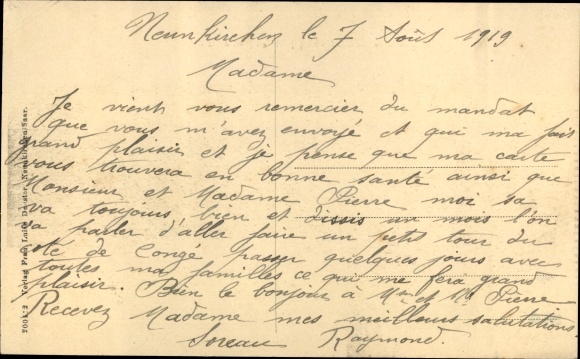 Neunkirchen le 7 Août 1919
Madame
Je vient vous remercier du mandat
que vous m'avez envoyé et qui ma fait
grand plaisir et je pense que ma carte
vous trouvera en bonne santé ainsi que
Monsieur et Madame Pierre moi sa
va toujours bien et dissis un mois l'on
va parler d'aller faire un petit tour du
coté de Congé passer quelques jours avec
toutes ma familles ce qui me fera grand
plaisir. Bien le bonjour à Mr et Me Pierre
Recevez Madame mes meilleurs salutations
Soreau Raymond.
Verlag Frau Luise Neunkirchen/Saar.